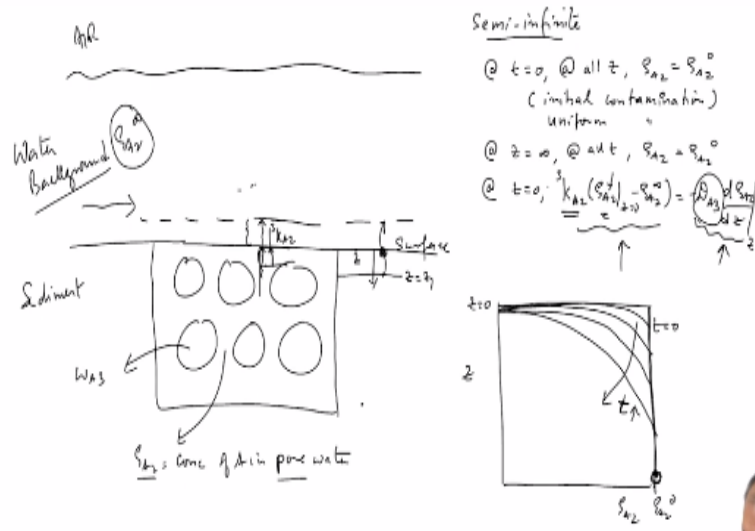 AIR
Water
Background
ρA2^∞
³kA2
Surface
z
z=z1
Sediment
WA3
ρA2 = conc of A in pore water
Semi-infinite
@ t=0, @ all z, ρA2 = ρA2°
(initial contamination)
uniform "
@ z=∞, @ all t, ρA2 = ρA2°
@ t=0, ³kA2 (ρA2|z=0 - ρA2^∞) = DA3 dρA2/dz
z=0
t=0
z
t↑
ρA2 ρA2°